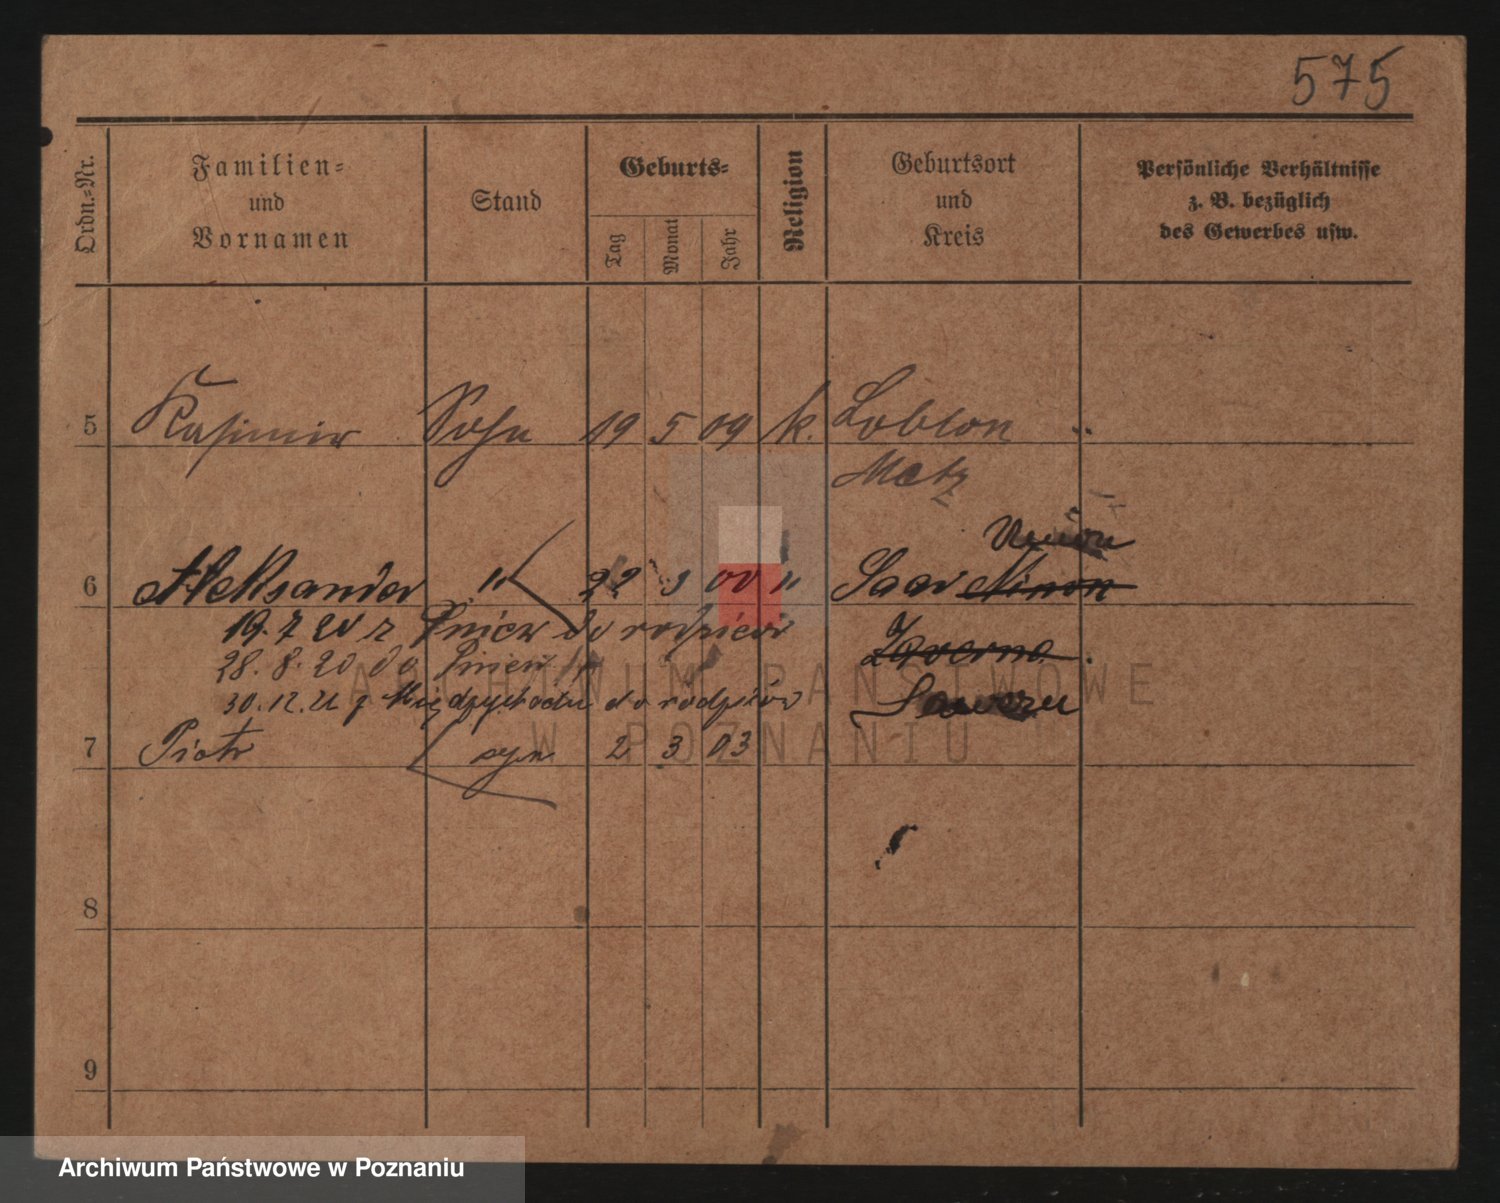 575
Ordn.-Nr.
Familien-
und
Vornamen
Stand
Geburts-
Tag
Monat
Jahr
Religion
Geburtsort
und
Kreis
Persönliche Verhältnisse
z. B. bezüglich
des Gewerbes usw.
5 Kasimir Sohn 19 5 09 k. Loblon
Metz
6 Aleksander " 22 9 00 " Saar
19. 7 20 z Pniew do rodziców
28. 8. 20 do Pniew
30. 12. 21 z Międzychodu do rodziców
7 Piotr syn 2 3 03
8
9
ARCHIWUM PAŃSTWOWE
W POZNANIU
Archiwum Państwowe w Poznaniu